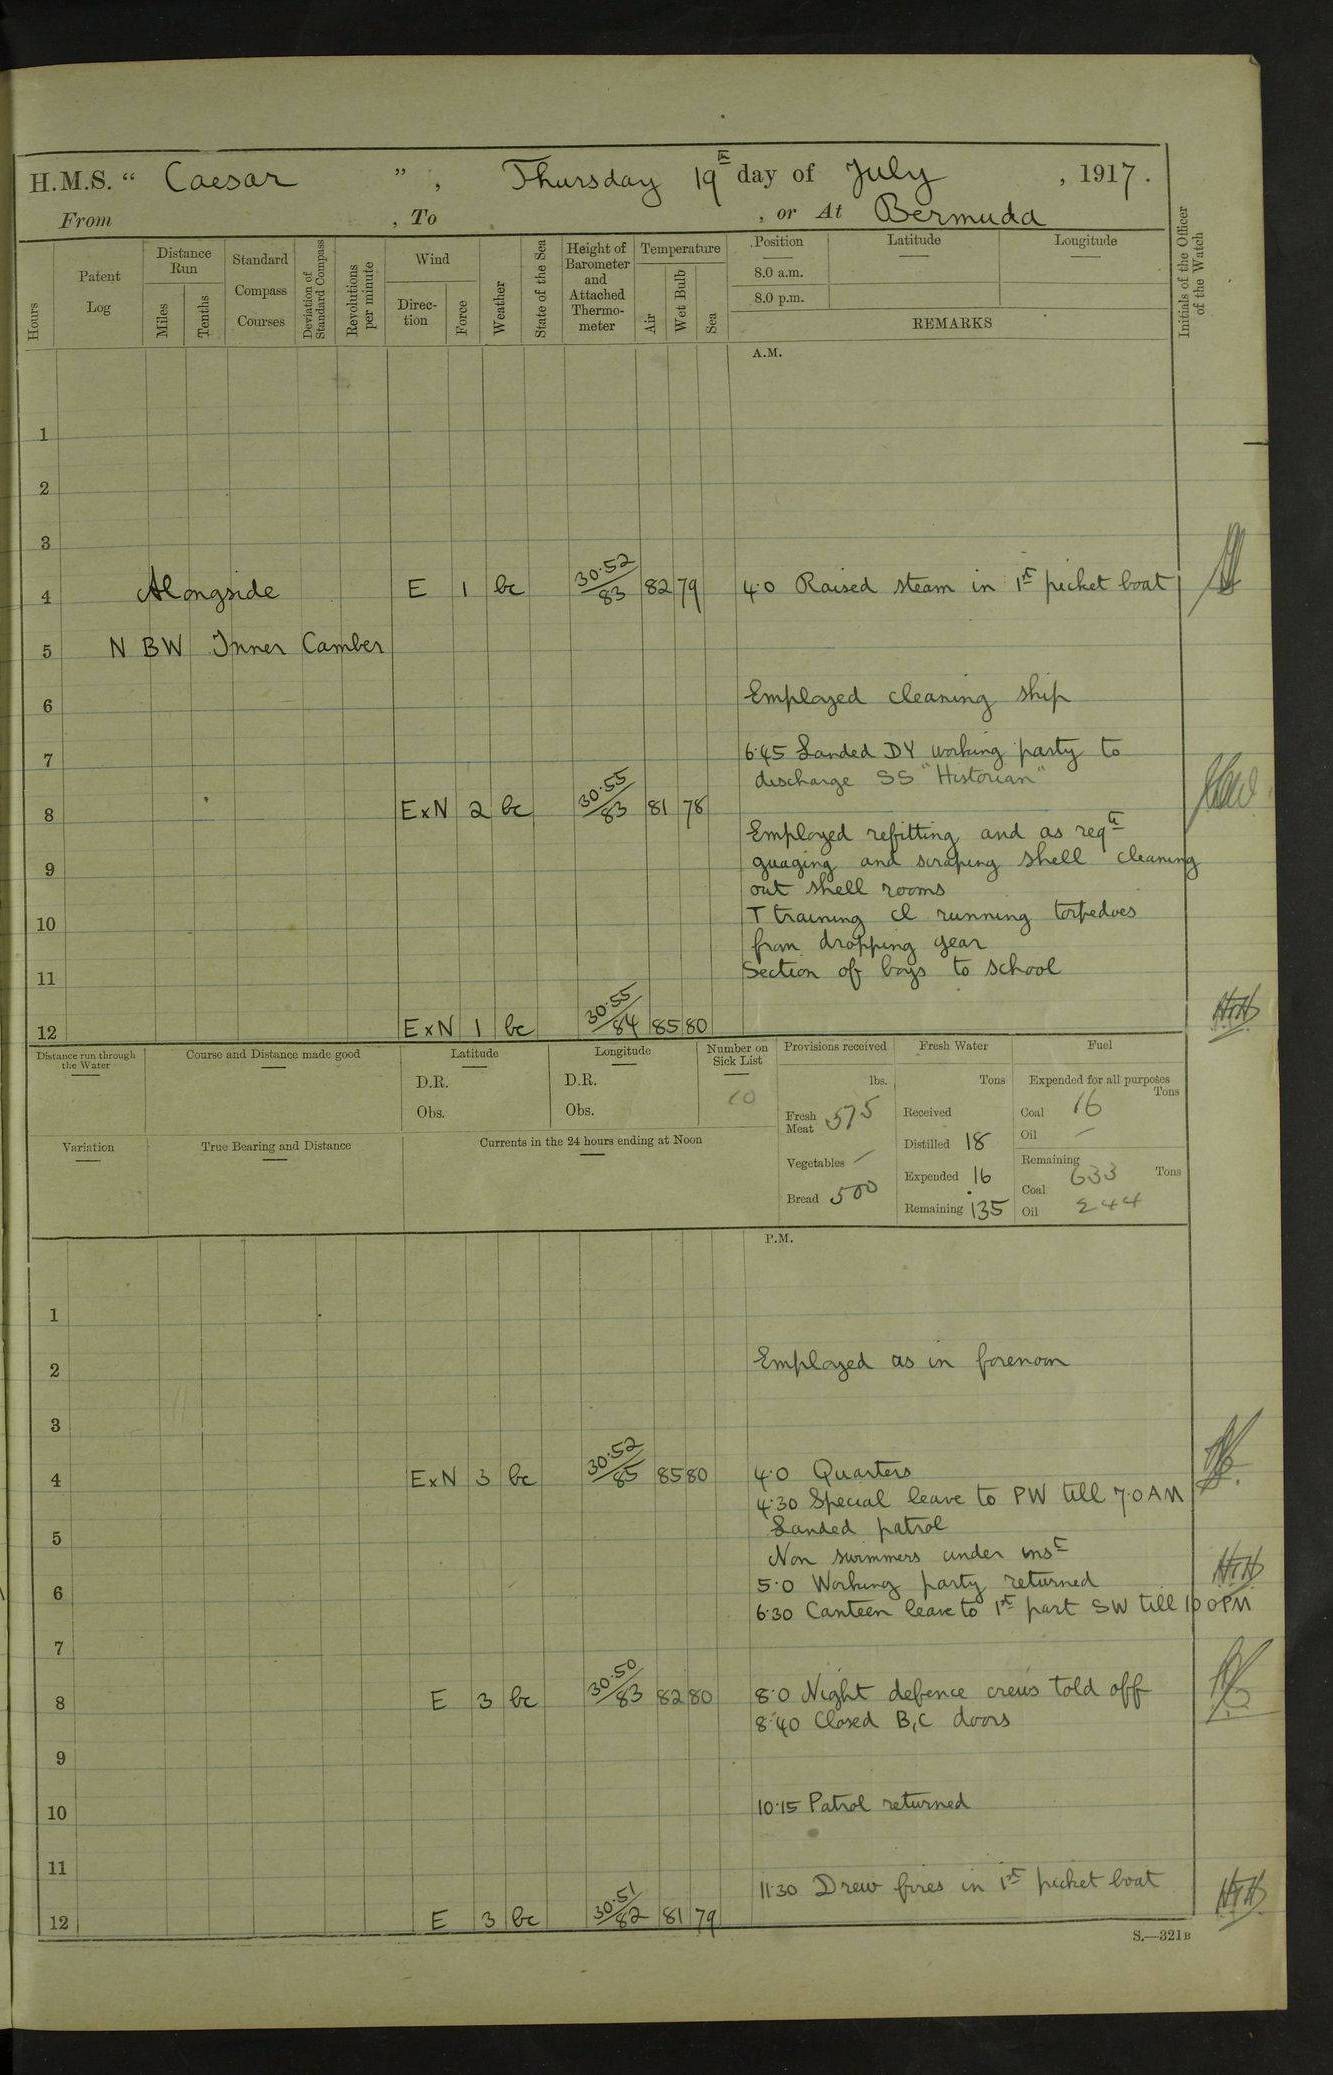 H.M.S. “ Caesar ” , Thursday 19th day of July , 1917 .
From , To , or At Bermuda
Hours
Patent Log
Distance Run
Miles
Tenths
Standard Compass Courses
Deviation of Standard Compass
Revolutions per minute
Wind
Direction
Force
Weather
State of the Sea
Height of Barometer and Attached Thermometer
Temperature
Air
Wet Bulb
Sea
Position
8.0 a.m.
8.0 p.m.
Latitude
Longitude
REMARKS
Initials of the Officer of the Watch
A.M.
1
2
3
4 Alongside E 1 bc 30.52/83 82 79 4.0 Raised steam in 1st picket boat
5 N BW Inner Camber
6 Employed cleaning ship
7 6.45 Landed DY working party to
discharge SS "Historian"
8 ExN 2 bc 30.55/83 81 78
Employed refitting and as reqd
9 guaging and scraping shell cleaning
out shell rooms
10 T training cl running torpedoes
from dropping gear
11 Section of boys to school
12 ExN 1 bc 30.55/84 85 80 HH
Distance run through the Water
Course and Distance made good
Latitude
D.R.
Obs.
Longitude
D.R.
Obs.
Number on Sick List
10
Provisions received
lbs.
Fresh Meat 575
Vegetables /
Bread 500
Fresh Water
Tons
Received
Distilled 18
Expended 16
Remaining 135
Fuel
Expended for all purposes
Tons
Coal 16
Oil –
Remaining
Tons
Coal 633
Oil 244
Variation
True Bearing and Distance
Currents in the 24 hours ending at Noon
P.M.
1
2 Employed as in forenoon
3
4 ExN 3 bc 30.52/85 85 80 4.0 Quarters
4.30 Special leave to PW till 7.0 AM
5 Landed patrol
Non swimmers under inst
6 5.0 Working party returned HH
6.30 Canteen leave to 1st part SW till 10 0 PM
7
8 E 3 bc 30.50/83 82 80 8.0 Night defence crews told off
8.40 Closed B,C doors
9
10 10.15 Patrol returned
11
11.30 Drew fires in 1st picket boat
12 E 3 bc 30.51/82 81 79 HH
S.—321B